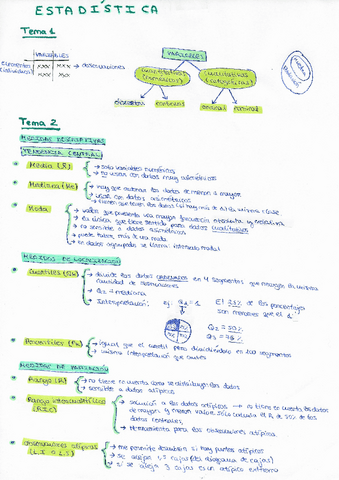 ESTADÍSTICA
Tema 1
VARIABLES
VARIABLES
elementos (individuos)
xxx xxx → observaciones
xxx xxx
cuantitativas (numéricas)
cualitativas (categóricas)
discretas continuas
ordinal nominal
Tema 2
MEDIDAS DESCRIPTIVAS
TENDENCIA CENTRAL
• Media (x̄) → solo variables numéricas
→ no usar con datos muy asimétricos
• Mediana (Me) → hay que ordenar los datos de menor a mayor
→ usar con datos asimétricos
• Moda → valor que presenta una mayor frecuencia absoluta y relativa
→ la única que tiene sentido para datos cualitativos
→ no sensible a datos asimétricos
→ puede haber más de una moda
→ en datos agrupados se llama intervalo modal
MEDIDAS DE LOCALIZACIÓN
• Cuartiles → divide los datos ORDENADOS en 4 segmentos
cantidad de observaciones
→ Q2 = mediana
→ Interpretación: ej: Q1 = 1 El 25% de los porcentajes
son menores que el 1
Q2 = 50%
Q3 = 75%
• Percentiles → igual que el cuartil pero dividiéndolo en 100 segmentos
→ misma interpretación que cuartil
MEDIDAS DE VARIACIÓN
• Rango (R) → no tiene en cuenta como se distribuyen los datos
→ sensible a datos atípicos
• Rango intercuartílico (RIC) → solución a los datos atípicos → no tiene en cuenta los datos
de mayor y menor valor, solo calcula el R de 50% de los
datos centrales
• observaciones atípicas (L.I o L.S) → me permite descubrir si hay puntos atípicos
→ se aleja 1,5 cajas (del diagrama de cajas)
→ si se aleja 3 cajas es un atípico extremo